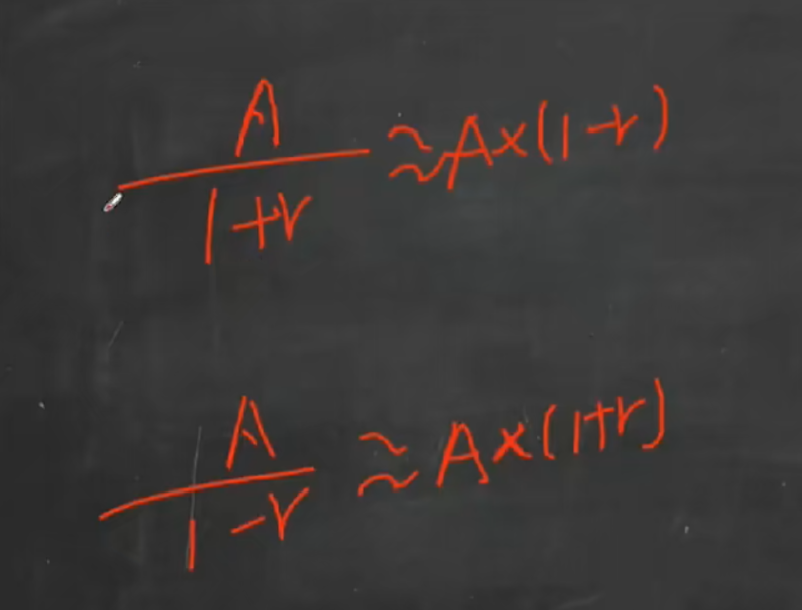 A/(1+r) ≈ A×(1-r)
A/(1-r) ≈ A×(1+r)